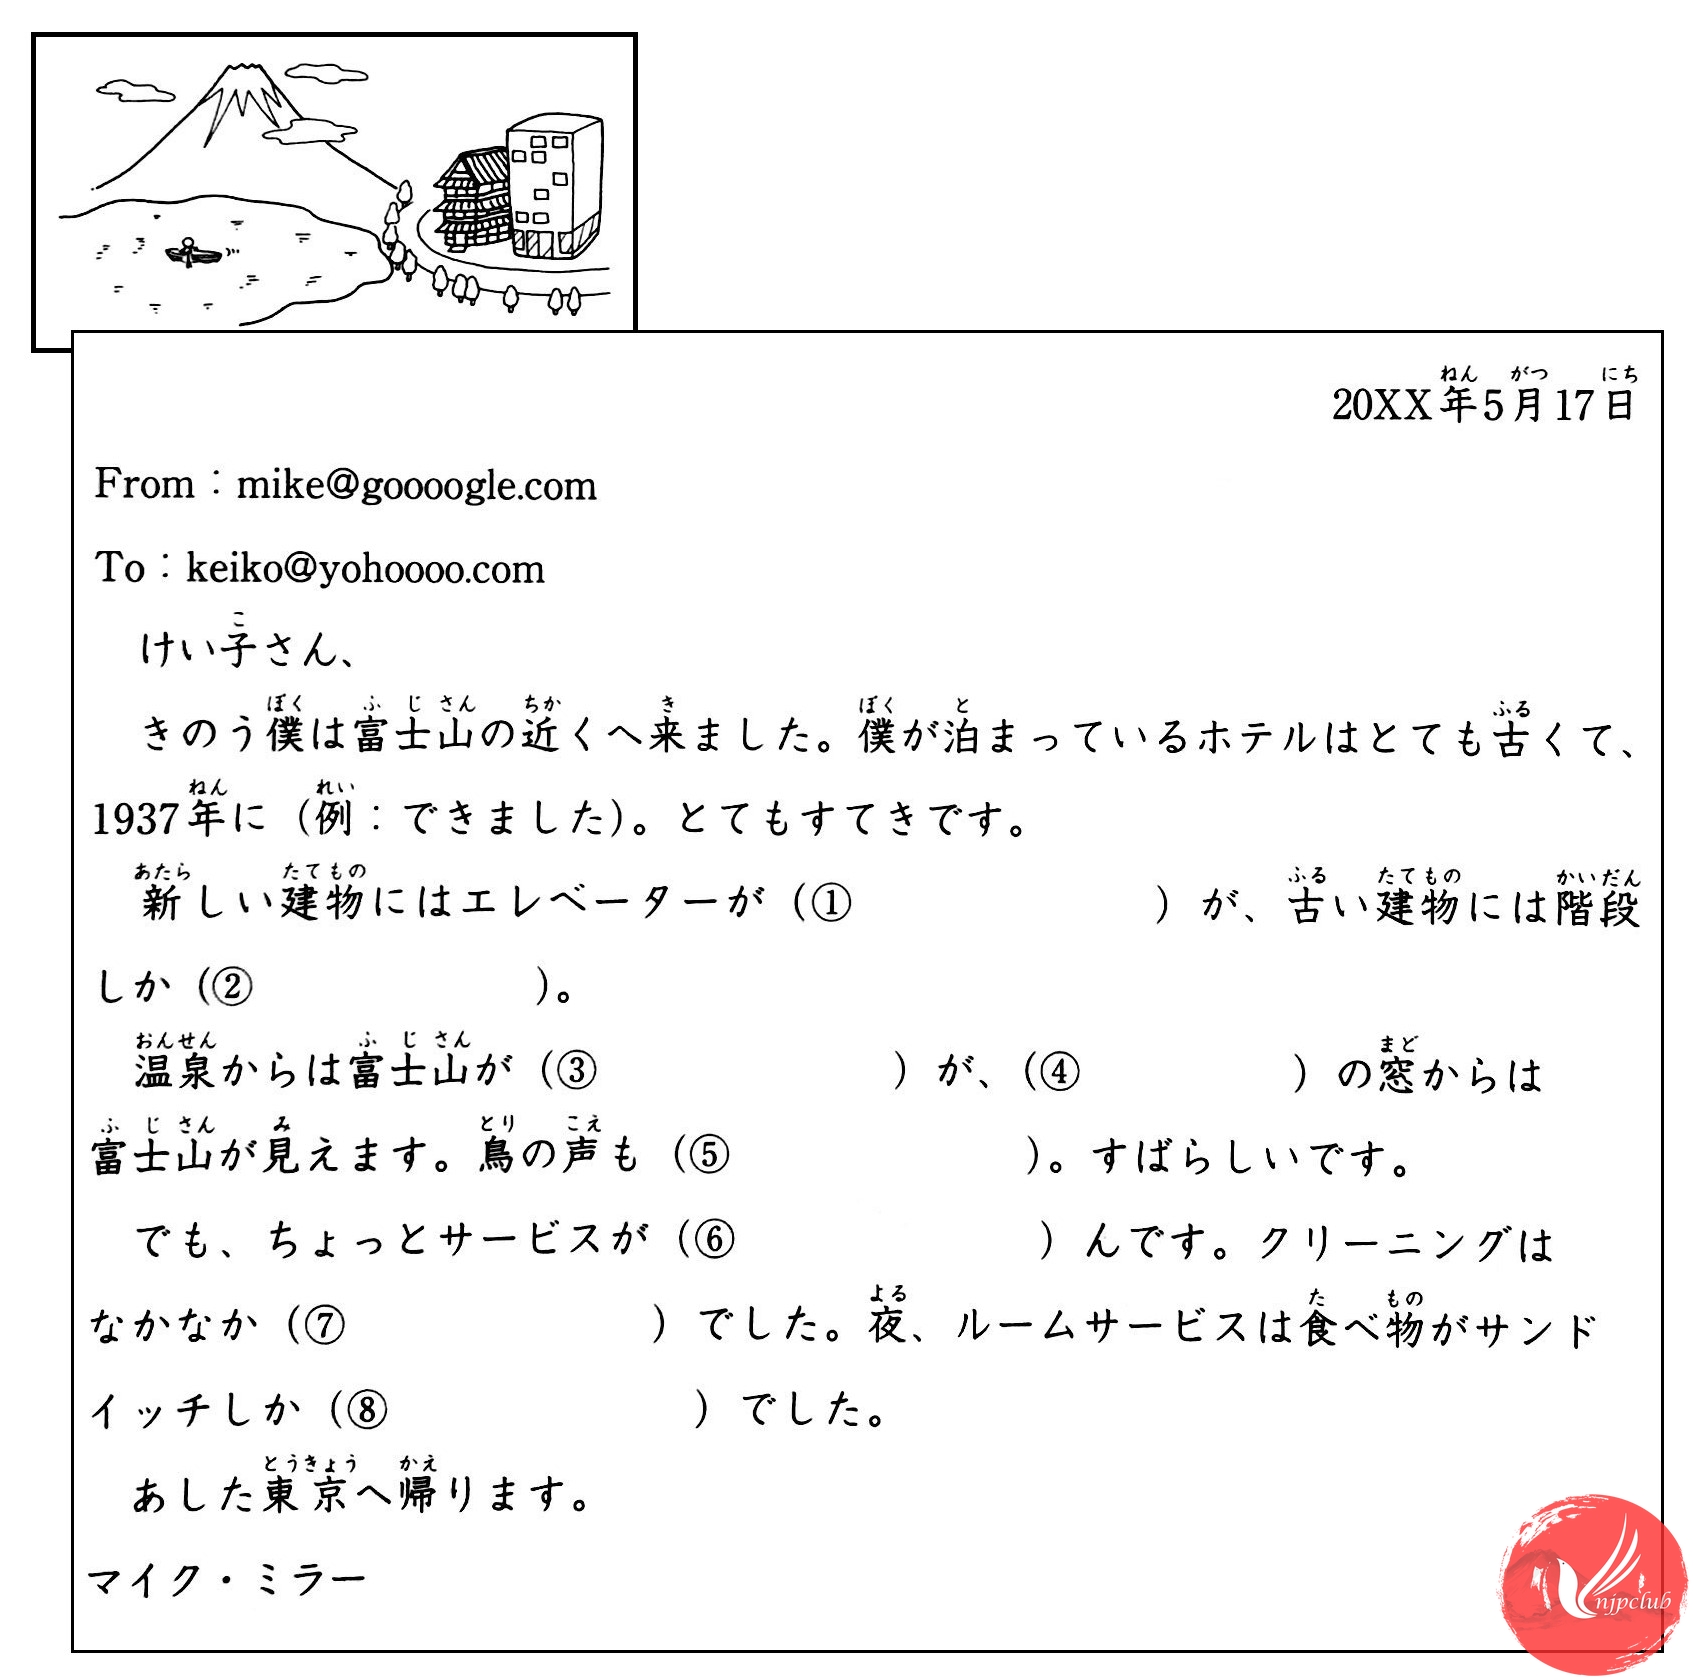 20XX年5月17日
From：mike@goooogle.com
To：keiko@yohoooo.com
けい子さん、
きのう僕は富士山の近くへ来ました。僕が泊まっているホテルはとても古くて、
1937年に（例：できました）。とてもすてきです。
新しい建物にはエレベーターが（①　　　）が、古い建物には階段
しか（②　　　）。
温泉からは富士山が（③　　　）が、（④　　　）の窓からは
富士山が見えます。鳥の声も（⑤　　　）。すばらしいです。
でも、ちょっとサービスが（⑥　　　）んです。クリーニングは
なかなか（⑦　　　）でした。夜、ルームサービスは食べ物がサンド
イッチしか（⑧　　　）でした。
あした東京へ帰ります。
マイク・ミラー
njpclub